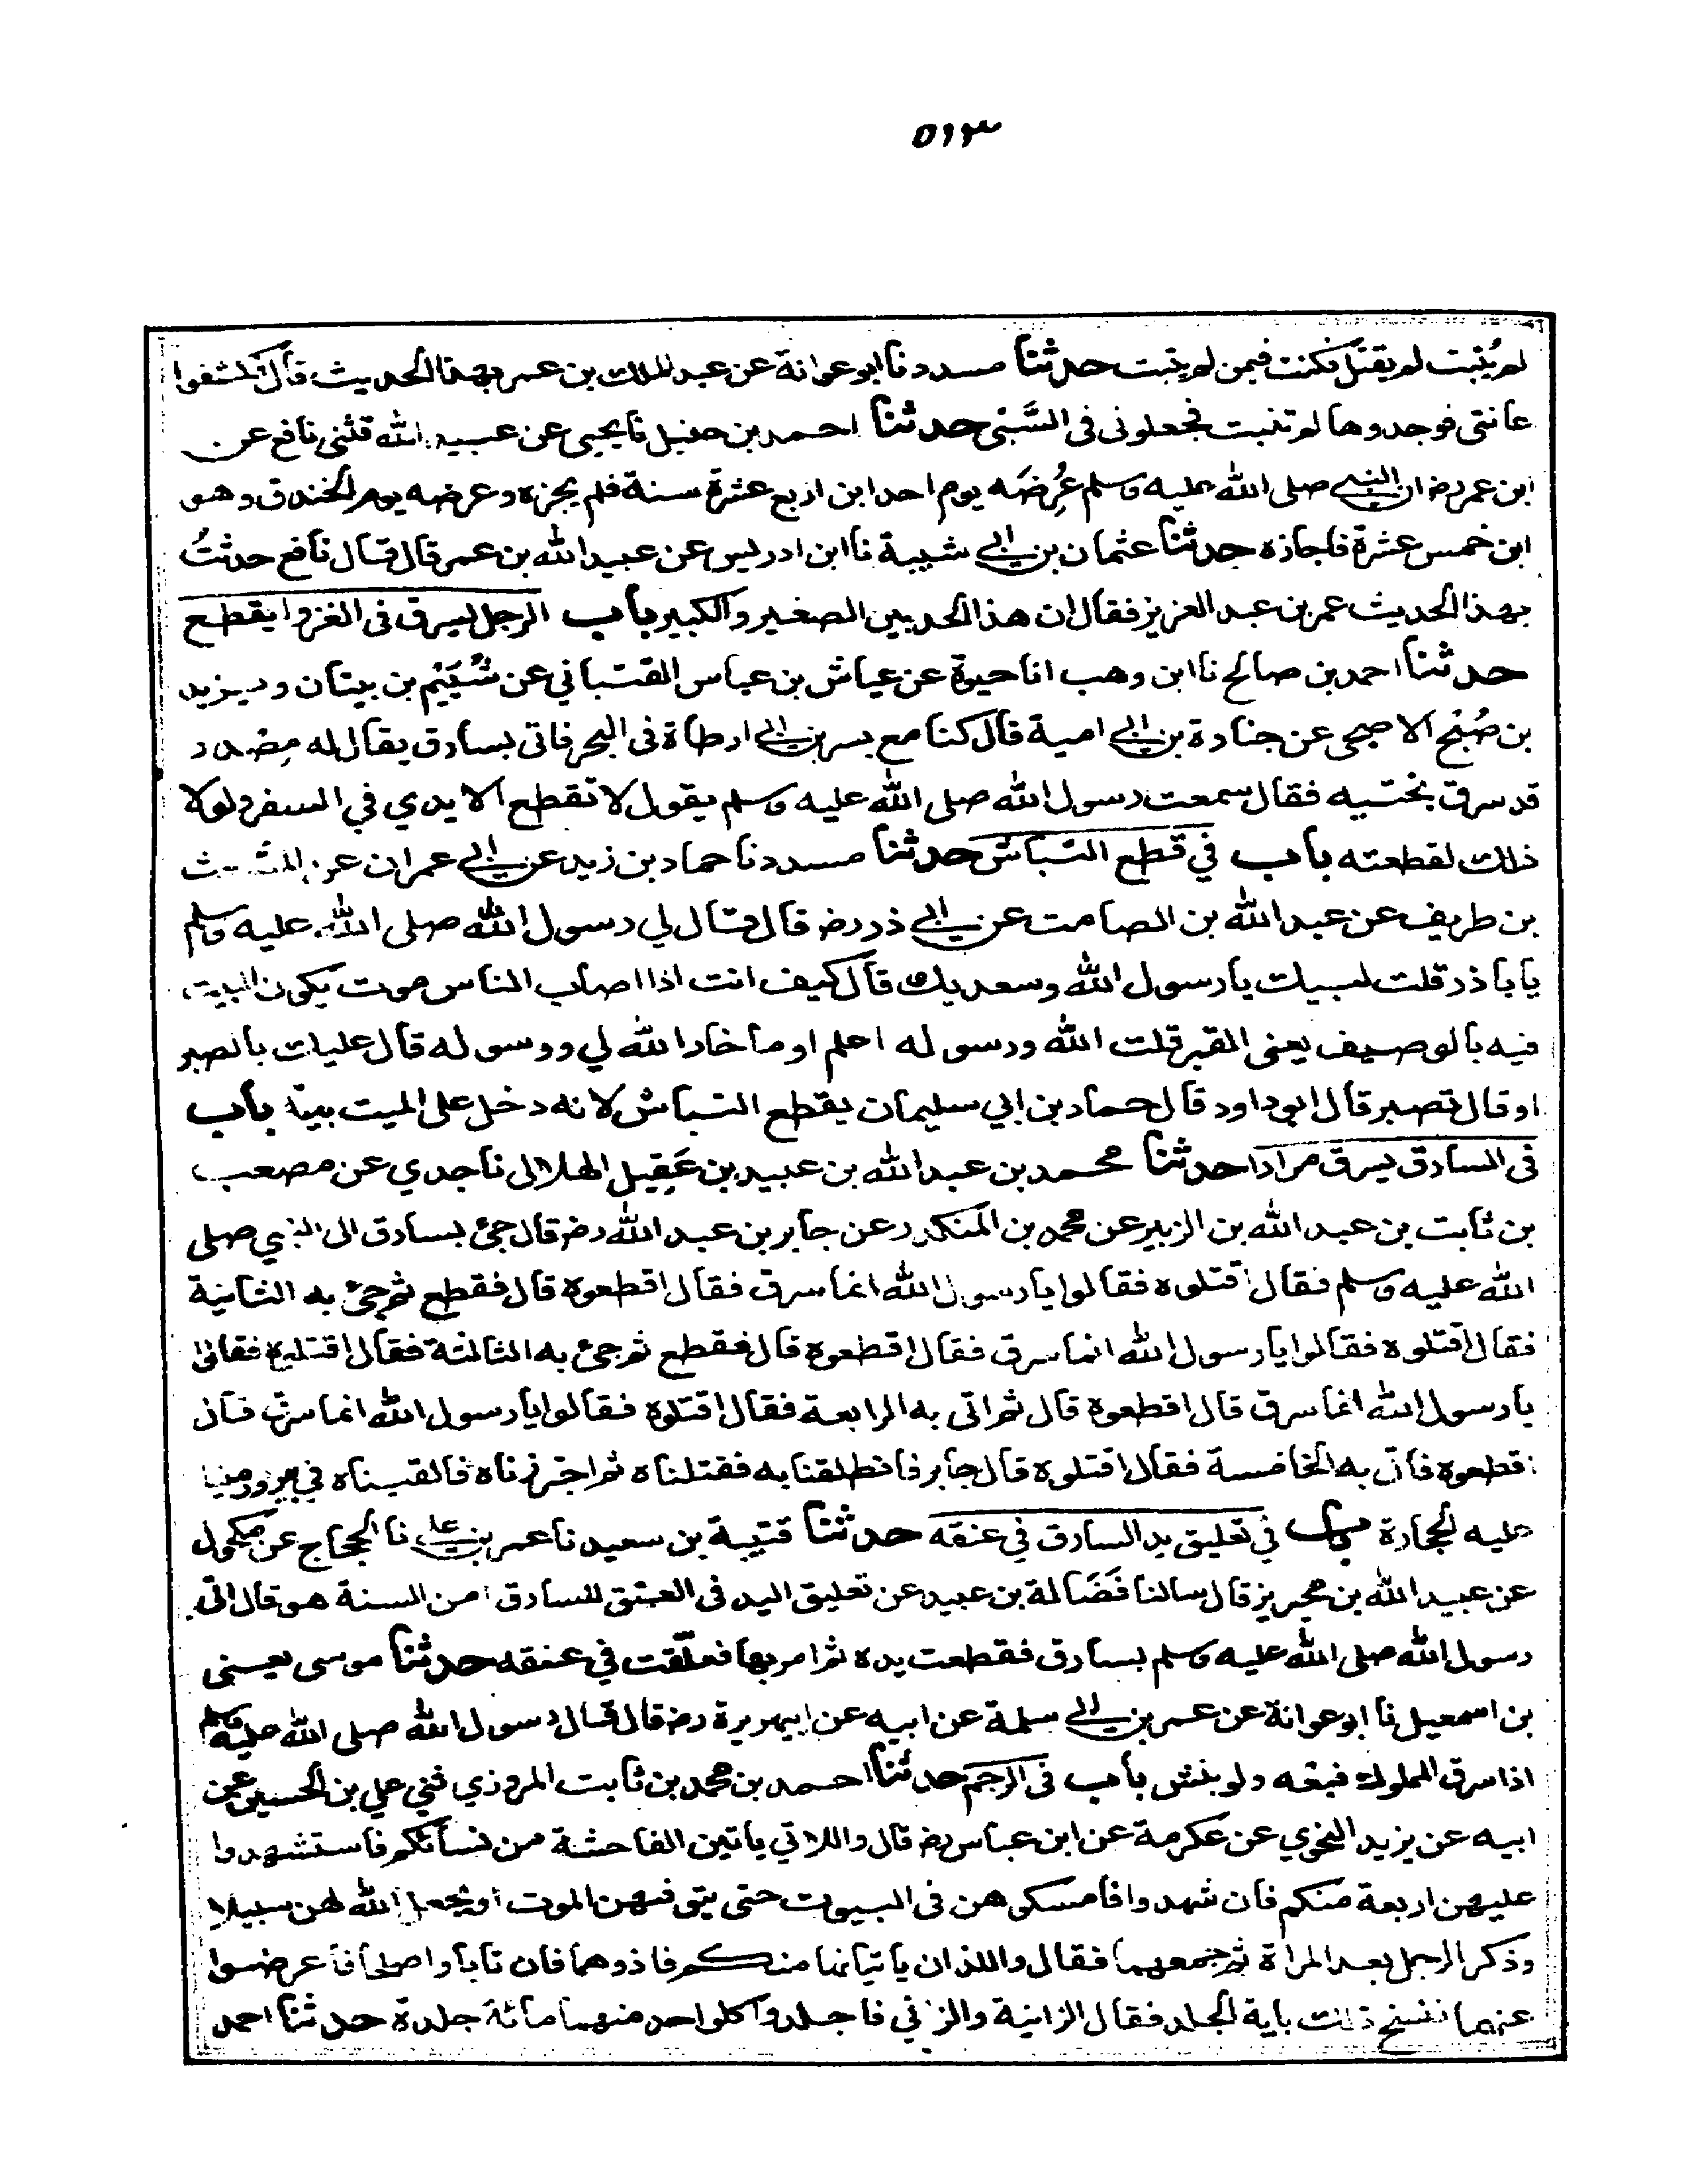 ٥١٣
لم يُنبت لم يقتل فكنت فيمن لم ينبت حدثنا مسدد نا ابو عوانة عن عبد الملك بن عمير بهذا الحديث قال فكشفوا
عانتي فوجدوها لم تنبت فجعلوني في السَّبْي حدثنا احمد بن حنبل نا يحيى عن عبيد الله قثني نافع عن
ابن عمر رض ان النبي صلى الله عليه وسلم عُرِضَه يوم احد ابن اربع عشرة سنة فلم يجزه وعرضه يوم الخندق وهو
ابن خمس عشرة فاجازه حدثنا عثمان بن ابي شيبة نا ابن ادريس عن عبيد الله بن عمر قال قال نافع حدثتُ
بهذا الحديث عمر بن عبد العزيز فقال ان هذا الحد بين الصغير والكبير باب الرجل يسرق في الغزو ا يقطع
حدثنا احمد بن صالح نا ابن وهب انا حيوة عن عياش بن عباس القتباني عن شُيَيْم بن بيتان ويزيد
بن صُبْح الاصبحي عن جنادة بن ابي امية قال كنا مع بسر بن ابي ارطاة في البحر فاتى بسارق يقال له مِصْدر
قد سرق بختيه فقال سمعت رسول الله صلى الله عليه وسلم يقول لا تقطع الايدي في السفر ولولا
ذلك لقطعته باب في قطع النباش حدثنا مسدد نا حماد بن زيد عن ابي عمران عن المشعث
بن طريف عن عبد الله بن الصامت عن ابي ذر رض قال قال لي رسول الله صلى الله عليه وسلم
يا با ذر قلت لبيك يا رسول الله وسعديك قال كيف انت اذا اصاب الناس موت يكون البيت
فيه بالوصيف يعني القبر قلت الله ورسوله اعلم او ما خار الله لي ورسوله قال عليك بالصبر
او قال تصبر قال ابو داود قال حماد بن ابي سليمان يقطع النباش لانه دخل على الميت بيته باب
في السارق يسرق مرارا حدثنا محمد بن عبد الله بن عبيد بن عَقِيل الهلالي نا جدي عن مصعب
بن ثابت بن عبد الله بن الزبير عن محمد بن المنكدر عن جابر بن عبد الله رض قال جئ بسارق الى النبي صلى
الله عليه وسلم فقال اقتلوه فقالوا يا رسول الله انما سرق فقال اقطعوه قال فقطع ثم جئ به الثانية
فقال اقتلوه فقالوا يا رسول الله انما سرق فقال اقطعوه قال فقطع ثم جئ به الثالثة فقال اقتلوه فقالوا
يا رسول الله انما سرق قال اقطعوه قال ثم اتى به الرابعة فقال اقتلوه فقالوا يا رسول الله انما سرق قال
اقطعوه فاتى به الخامسة فقال اقتلوه قال جابر فانطلقنا به فقتلناه ثم اجتررناه فالقيناه في بير ورمينا
عليه الحجارة باب في تعليق يد السارق في عنقه حدثنا قتيبة بن سعيد نا عمر بن علي نا الحجاج عن مكحول
عن عبيد الله بن محيريز قال سالنا فَضَالة بن عبيد عن تعليق اليد في العنق للسارق امن السنة هو قال اتى
رسول الله صلى الله عليه وسلم بسارق فقطعت يده ثم امر بها فعلّقت في عنقه حدثنا موسى يعني
بن اسمعيل نا ابو عوانة عن عمر بن ابي سلمة عن ابيه عن ابي هريرة رض قال قال رسول الله صلى الله عليه وسلم
اذا سرق المملوك فبعه ولو بنش باب في الرجم حدثنا احمد بن محمد بن ثابت المروزي ثني علي بن الحسين عن
ابيه عن يزيد النحوي عن عكرمة عن ابن عباس رض قال واللاتي ياتين الفاحشة من نسائكم فاستشهدوا
عليهن اربعة منكم فان شهدوا فامسكوهن في البيوت حتى يتوفهن الموت او يجعل الله لهن سبيلا
وذكر الرجل بعد المراة ثم جمعهما فقال واللذان ياتيانها منكم فاذوهما فان تابا واصلحا فاعرضوا
عنهما فنسخ ذلك باية الجلد فقال الزانية والزاني فاجلدوا كل واحد منهما مائة جلدة حدثنا احمد